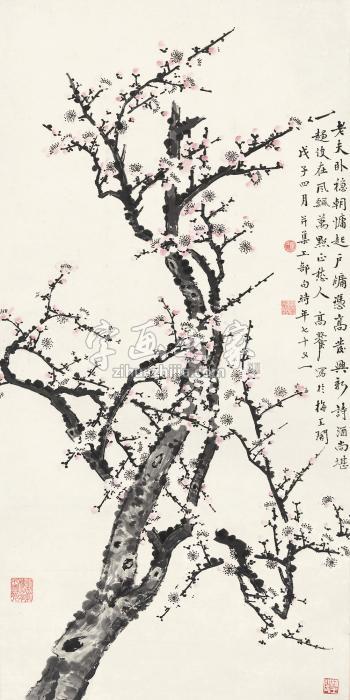 老夫卧稳朝慵起戶牖憑高發興新詩酒尚堪
一趨後在風飄萬點正愁人 高 寫於梅王閣
戊子四月 并集工部句時年七十又一
字画之家
zihuazhijia.com